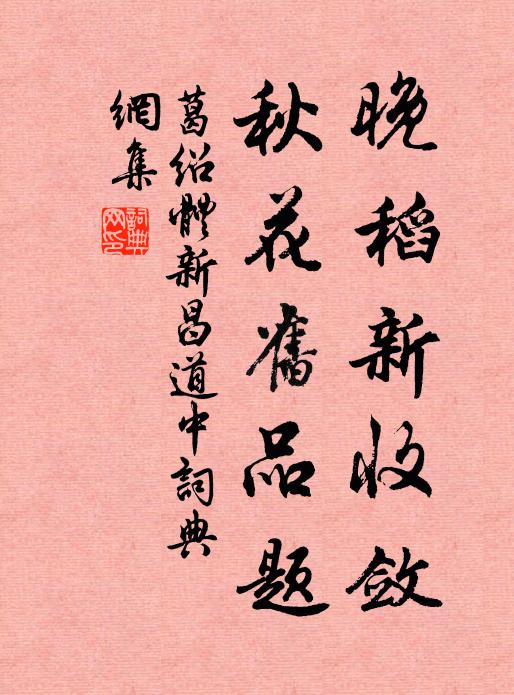 晚稻新收斂
秋花舊品题
葛紹體新昌道中詞典
網集
詞典網印